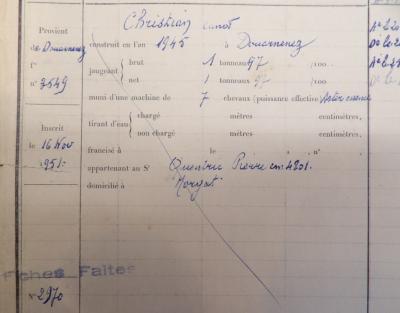 Christian canot
Provient
de Douarnenez construit en l'an 1945 à Douarnenez
fº
nº 2549
jaugeant brut 1 tonneau 97 /100
net 1 tonneaux 97 /100
muni d'une machine de 7 chevaux (puissance effective) essence
tirant d'eau chargé mètres centimètres,
non chargé mètres centimètres,
Inscrit
le 16 Nov
1951
francisé à le , nº
appartenant au Sr Pierre cm 4201
domicilié à Morgat
Fiches Faites
nº 2970